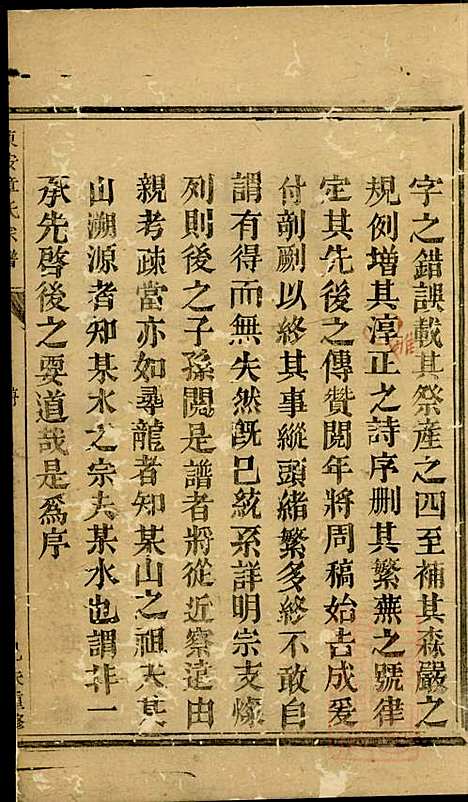 字之錯誤載其祭產之四至補其森嚴之
規例增其淳正之詩序刪其繁蕪之號律
定其先後之傳贊閱年將周稿始吿成爰
付剞劂以終其事縱頭緒繁多終不敢自
謂有得而無失然旣已統系詳明宗支燦
列則後之子孫閱是譜者將從近察遠由
親考疎當亦如尋龍者知某山之祖夫某
山溯源者知某水之宗夫某水也謂非一
承先啓後之要道哉是爲序
氏宗譜
重修